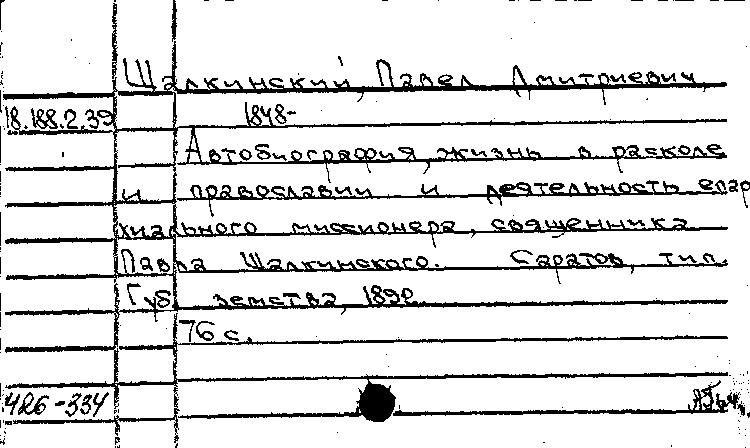 Шалкинский, Павел Дмитриевич,
18.188.2.39 1848-
Автобиография, жизнь в расколе
и православии и деятельность епар
хиального миссионера, священника
Павла Шалкинского. Саратов, тип.
Губ. земства,
76 с.
426-334